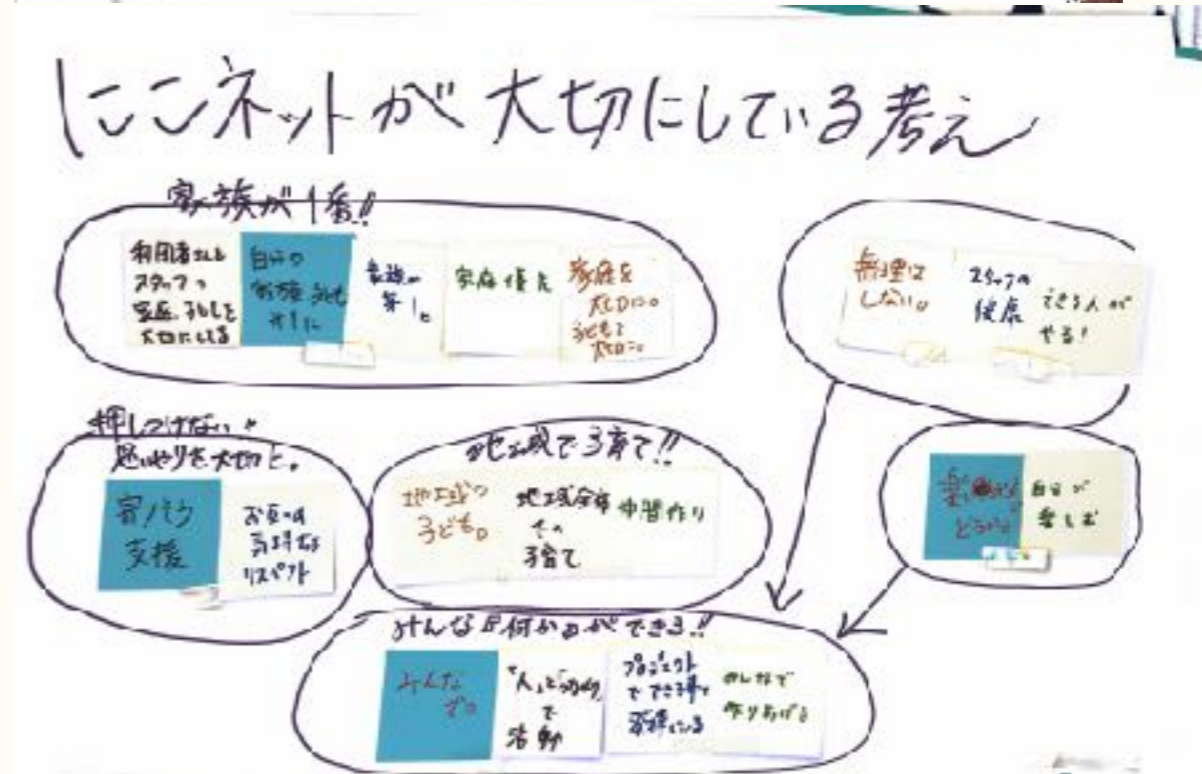 にこネットが大切にしている考え
家族が1番!!
利用者さんも
スタッフの
家庭、子もしを
大切にしてる
自分の
家族、子ども
第1に
家族が
第1。
家庭優先
家庭を
大切に。
子どもを
大切に。
無理は
しない。
スタッフの
健康
できる人が
やる!
押しつけない。
思いやりを大切に。
寄りそう
支援
お互いの
気持ちを
リスペクト
地域で子育て!!
地域の
子ども。
地域全体
での
子育て
仲間作り
自分が
楽しむ
みんな何かができる!!
みんな
で。
で
活動
プロジェクト
みんなで
作りあげる